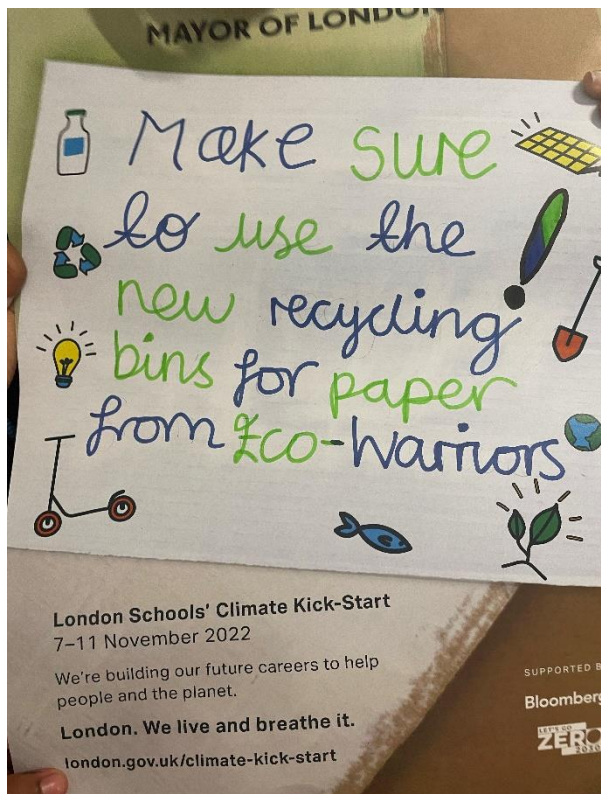 MAYOR OF LONDON
Make sure
to use the
new recycling
bins for paper
from Eco-Warriors
London Schools' Climate Kick-Start
7–11 November 2022
We're building our future careers to help
people and the planet.
London. We live and breathe it.
london.gov.uk/climate-kick-start
SUPPORTED B
Bloomberg
LET'S GO
ZERO
2030